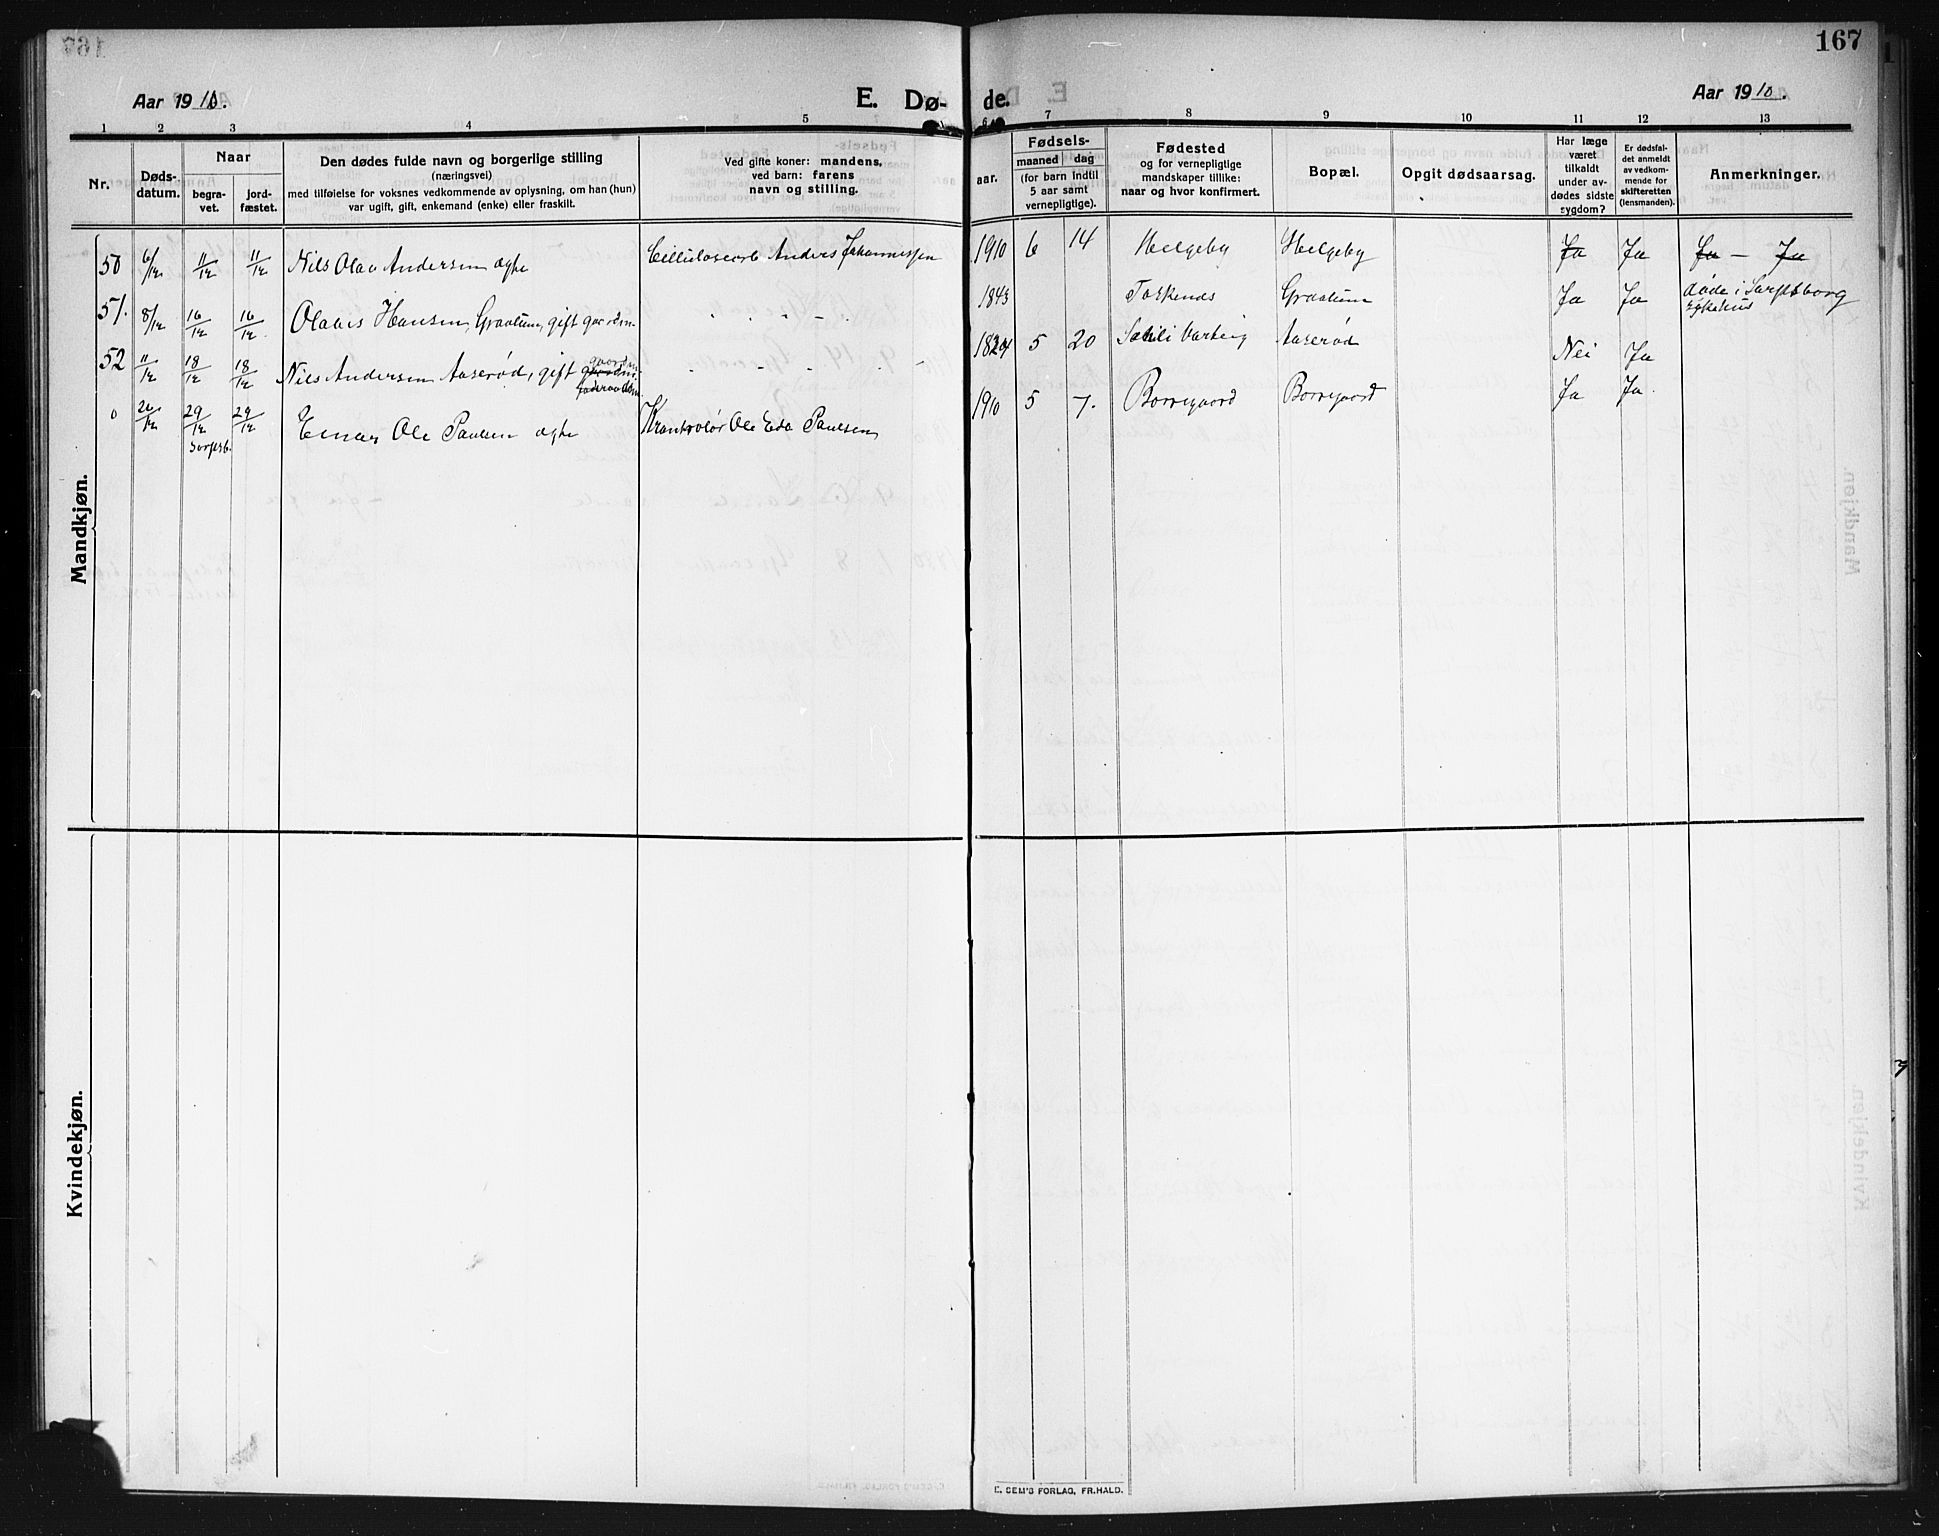 167
Aar 1910.
E. Dø-
de.
Aar 1910.
1 2 3 4 5 6 7 8 9 10 11 12 13
Nr.
Døds-
datum.
Naar
begra-
vet.
jord-
fæstet.
Den dødes fulde navn og borgerlige stilling
(næringsvei)
med tilføielse for voksnes vedkommende av oplysning, om han (hun)
var ugift, gift, enkemand (enke) eller fraskilt.
Ved gifte koner: mandens,
ved barn: farens
navn og stilling.
aar.
Fødsels-
maaned dag
(for barn indtil
5 aar samt
vernepligtige).
Fødested
og for vernepligtige
mandskaper tillike:
naar og hvor konfirmert.
Bopæl.
Opgit dødsaarsag.
Har læge
været
tilkaldt
under av-
dødes sidste
sygdom?
Er dødsfal-
det anmeldt
av vedkom-
mende for
skifteretten
(lensmanden).
Anmerkninger.
Mandkjøn.
50 6/12 11/12 11/12 Nils Olav Andersen ægte Cellulosearb Anders Johannessen 1910 6 14 Helgeby Helgeby Ja Ja Ja – Ja
51. 8/12 16/12 16/12 Olaves Hansen, Graatum, gift gaardm. 1843 Torkends Graatum Ja Ja døde i Sarpsborg
sykehus
52 11/12 18/12 18/12 Nils Andersen Aaserød, gift gaardm. 5 20 Varteig Aaserød Nei Ja
0 26/12 29/12 29/12 Einar Ole Paulsen ægte Ole Edv Paulsen 1910 5 7. Borregaard Borregaard Ja Ja.
Sarpsb.
Kvindekjøn.
E. SEM'S FORLAG, FR.HALD.